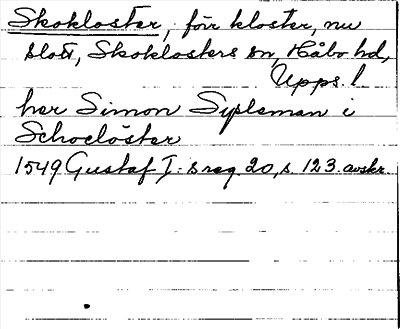 Skokloster, förr kloster, nu
slott, Skoklosters sn, Håbo hd,
Upps. l
her Simon Sysleman i
Schoclöster
1549 Gustaf I: s reg. 20, s. 123. avskr.